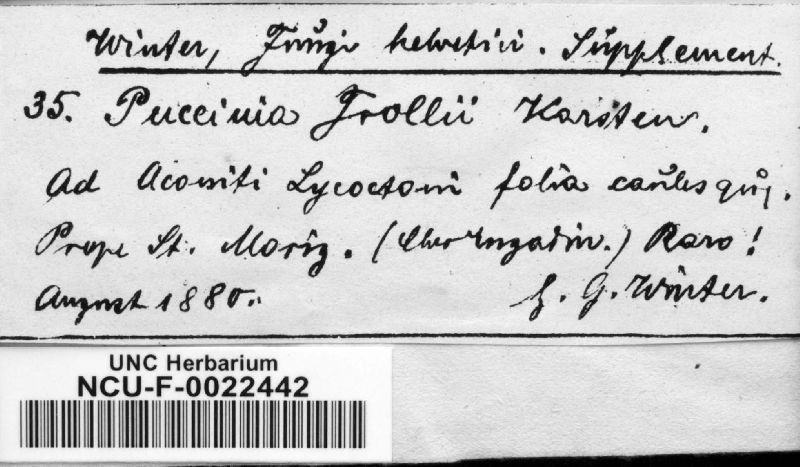 Winter, Fungi helvetici. Supplement.
35. Puccinia Trollii Karsten.
Ad Aconiti Lycoctoni folia caulesque.
Prope St. Moriz. (Ober Engadin.) Raro!
August 1880. G. Winter.
UNC Herbarium
NCU-F-0022442